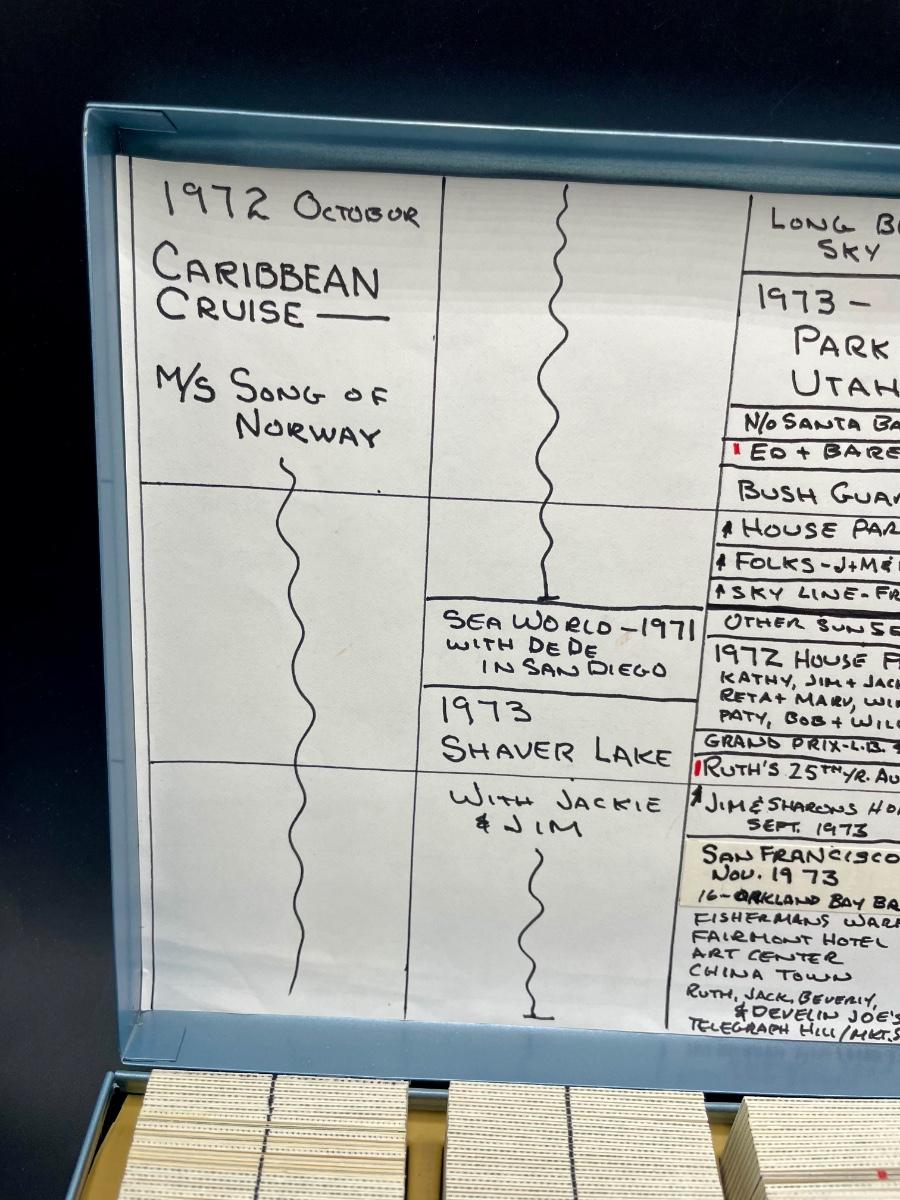 1972 OCTOBUR
CARIBBEAN
CRUISE —
M/S SONG OF
NORWAY
SEA WORLD - 1971
WITH DEDE
IN SAN DIEGO
1973
SHAVER LAKE
WITH JACKIE
& JIM
LONG
SKY
1973 -
PARK
UTAH
N/O SANTA
ED +
BUSH
HOUSE
FOLKS - J+M&
SKY LINE -
OTHER
1972 HOUSE
KATHY, JIM +
RETA + MARV,
PATY, BOB +
GRAND PRIX - L.B.
RUTH'S 25TH YR.
JIM & SHARONS
SEPT. 1973
SAN FRANCISCO
NOV. 1973
16 - OAKLAND BAY
FISHERMANS
FAIRMONT HOTEL
ART CENTER
CHINA TOWN
RUTH, JACK, BEVERLY,
& DEVELIN JOE'S
TELEGRAPH HILL/MKT.